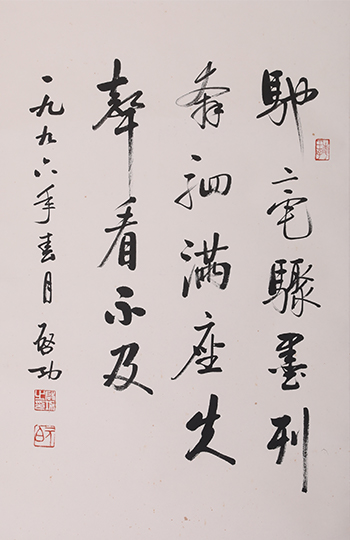 馳毫驟墨列
奔駟滿座失
聲看不及
一九九六年春月 啓功